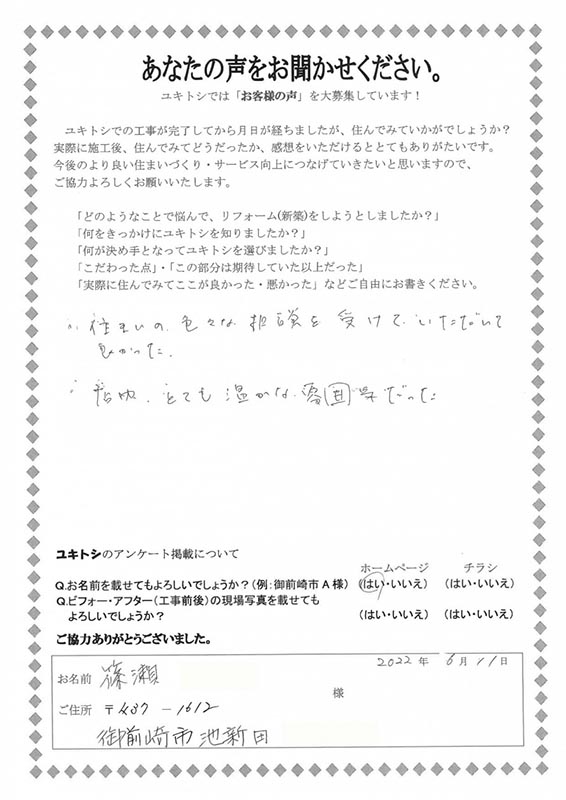 あなたの声をお聞かせください。
ユキトシでは「お客様の声」を大募集しています！
ユキトシでの工事が完了してから月日が経ちましたが、住んでみていかがでしょうか？
実際に施工後、住んでみてどうだったか、感想をいただけるととてもありがたいです。
今後のより良い住まいづくり・サービス向上につなげていきたいと思いますので、
ご協力よろしくお願いいたします。
「どのようなことで悩んで、リフォーム(新築)をしようとしましたか？」
「何をきっかけにユキトシを知りましたか？」
「何が決め手となってユキトシを選びましたか？」
「こだわった点」・「この部分は期待していた以上だった」
「実際に住んでみてここが良かった・悪かった」などご自由にお書きください。
住まいの色々な相談を受けていただいて
良かった。
店内、とても温かな雰囲気だった
ユキトシのアンケート掲載について
ホームページ チラシ
Q.お名前を載せてもよろしいでしょうか？(例：御前崎市A様) (はい・いいえ) (はい・いいえ)
Q.ビフォー・アフター(工事前後)の現場写真を載せても
よろしいでしょうか？ (はい・いいえ) (はい・いいえ)
ご協力ありがとうございました。
2022年 6月11日
お名前 篠瀬 様
ご住所 〒437-1612
御前崎市池新田